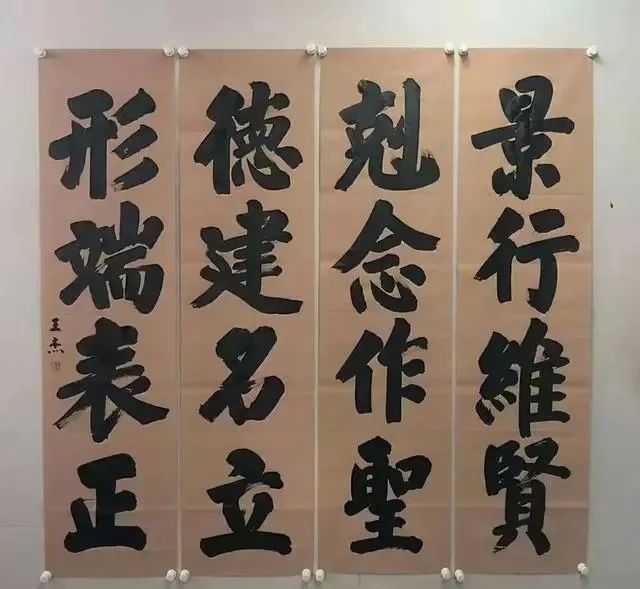 景行維賢
剋念作聖
德建名立
形端表正
王杰